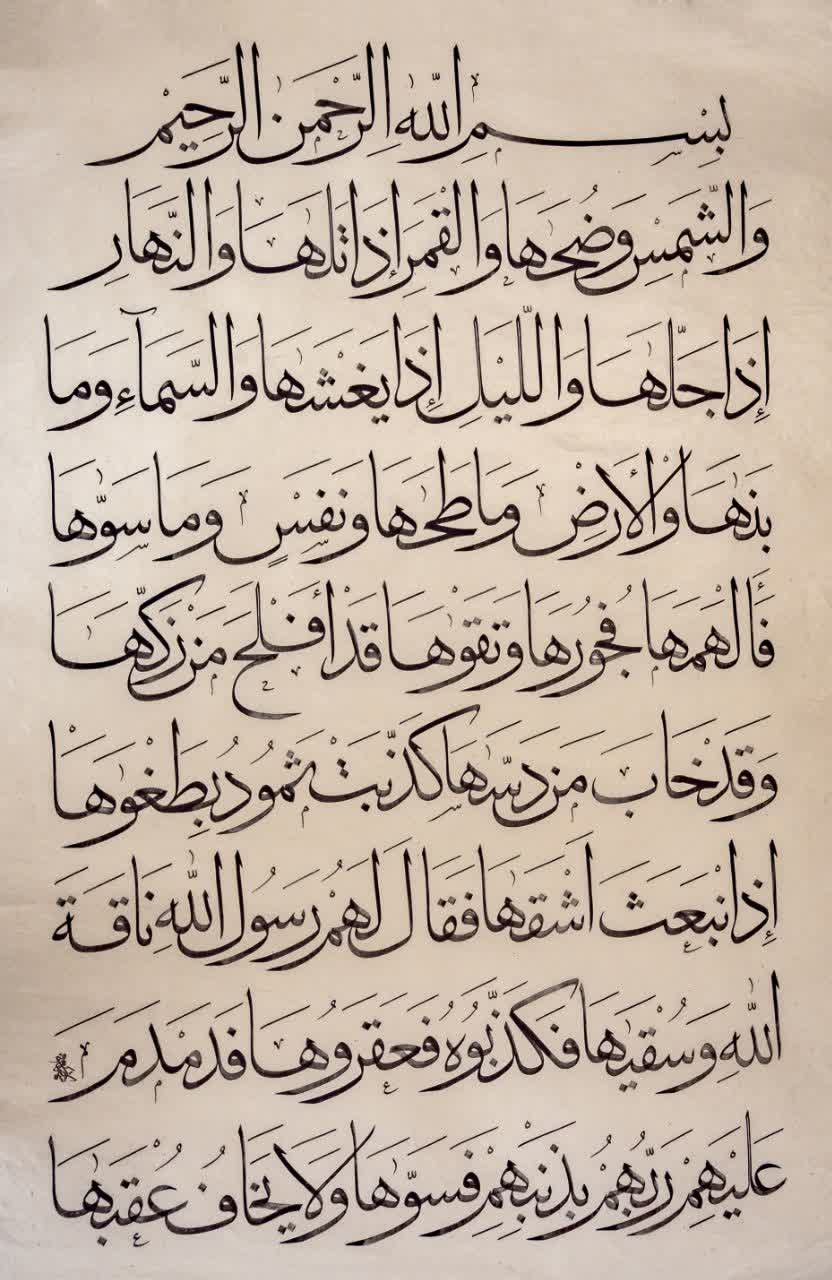 بِسْمِ اللّٰهِ الرَّحْمٰنِ الرَّحِيْمِ
وَالشَّمْسِ وَضُحٰهَا وَالْقَمَرِ إِذَا تَلٰهَا وَالنَّهَارِ
إِذَا جَلّٰهَا وَاللَّيْلِ إِذَا يَغْشٰهَا وَالسَّمَآءِ وَمَا
بَنٰهَا وَالْأَرْضِ وَمَا طَحٰهَا وَنَفْسٍ وَمَا سَوّٰهَا
فَأَلْهَمَهَا فُجُورَهَا وَتَقْوٰهَا قَدْ أَفْلَحَ مَنْ زَكّٰهَا
وَقَدْ خَابَ مَنْ دَسّٰهَا كَذَّبَتْ ثَمُودُ بِطَغْوٰهَا
إِذِ انْبَعَثَ أَشْقٰهَا فَقَالَ لَهُمْ رَسُولُ اللّٰهِ نَاقَةَ
اللّٰهِ وَسُقْيٰهَا فَكَذَّبُوهُ فَعَقَرُوهَا فَدَمْدَمَ
عَلَيْهِمْ رَبُّهُمْ بِذَنْبِهِمْ فَسَوّٰهَا وَلَا يَخَافُ عُقْبٰهَا